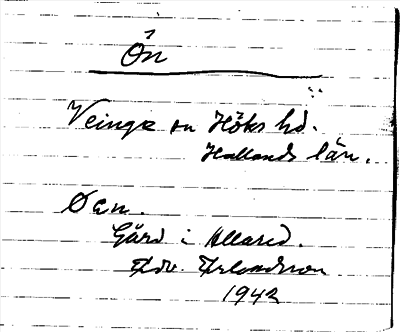 Ön
Veinge sn Höks hd.
Hallands län.
Öen.
Gård i Allared.
Edv. Erlandsson
1942